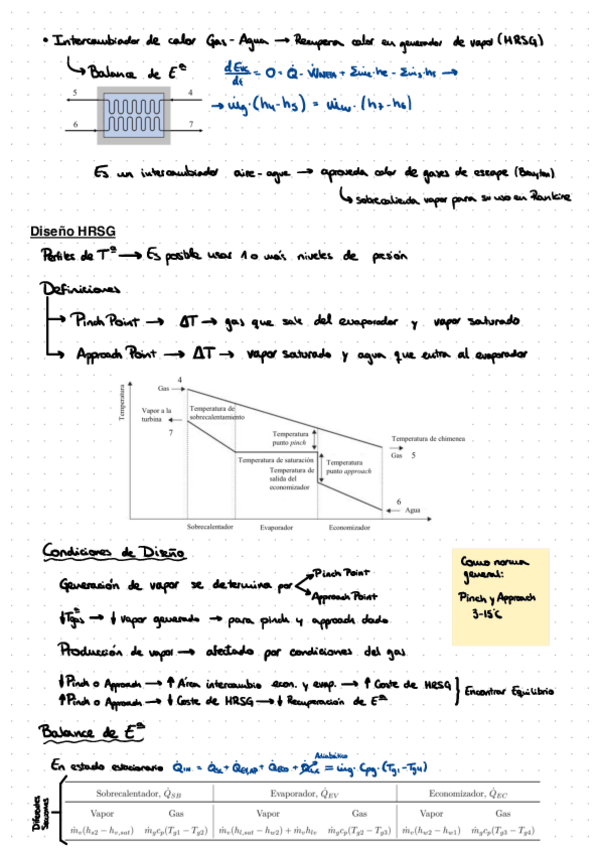 • Intercambiador de calor Gas-Agua → Recupera calor en generador de vapor (HRSG)
↳ Balance de Eª dEvc/dt = 0 = Q̇ - Ẇ + Σṁe·he - Σṁs·hs →
5 4
→ ṁg·(h4-h5) = ṁw·(h7-h6)
6 7
Es un intercambiador aire-agua → aprovecha calor de gases de escape (Brayton)
↳ sobrecalienta vapor para su uso en Rankine
Diseño HRSG
Perfiles de Tª → Es posible usar 1 o más niveles de presión
Definiciones
→ Pinch Point → ΔT → gas que sale del evaporador y vapor saturado
→ Approach Point → ΔT → vapor saturado y agua que entra al evaporador
Temperatura
4
Gas
Vapor a la
turbina
7
Temperatura de
sobrecalentamiento
Temperatura
punto pinch
Temperatura de chimenea
Gas 5
Temperatura de saturación
Temperatura de
salida del
economizador
Temperatura
punto approach
6
Agua
Sobrecalentador Evaporador Economizador
Condiciones de Diseño
Como norma
general:
Pinch y Approach
3-15°C
Generación de vapor se determina por Pinch Point
Approach Point
↓Tgasª → ↓ vapor generado → para pinch y approach dado
Producción de vapor → afectado por condiciones del gas
↓Pinch o Approach → ↑ Área intercambio econ. y evap. → ↑ Coste de HRSG
↑Pinch o Approach → ↓ Coste de HRSG → ↓ Recuperación de Eª } Encontrar Equilibrio
Balance de Eª
Adiabático
En estado estacionario Q̇IN = Q̇SC + Q̇EVAP + Q̇ECO + = ṁg·Cpg·(Tg1-Tg4)
Diferentes
Secciones
Sobrecalentador, Q̇SB Evaporador, Q̇EV Economizador, Q̇EC
Vapor Gas Vapor Gas Vapor Gas
ṁv(hs2 − hv,sat) ṁgcp(Tg1 − Tg2) ṁv(hl,sat − hw2) + ṁvhlv ṁgcp(Tg2 − Tg3) ṁv(hw2 − hw1) ṁgcp(Tg3 − Tg4)